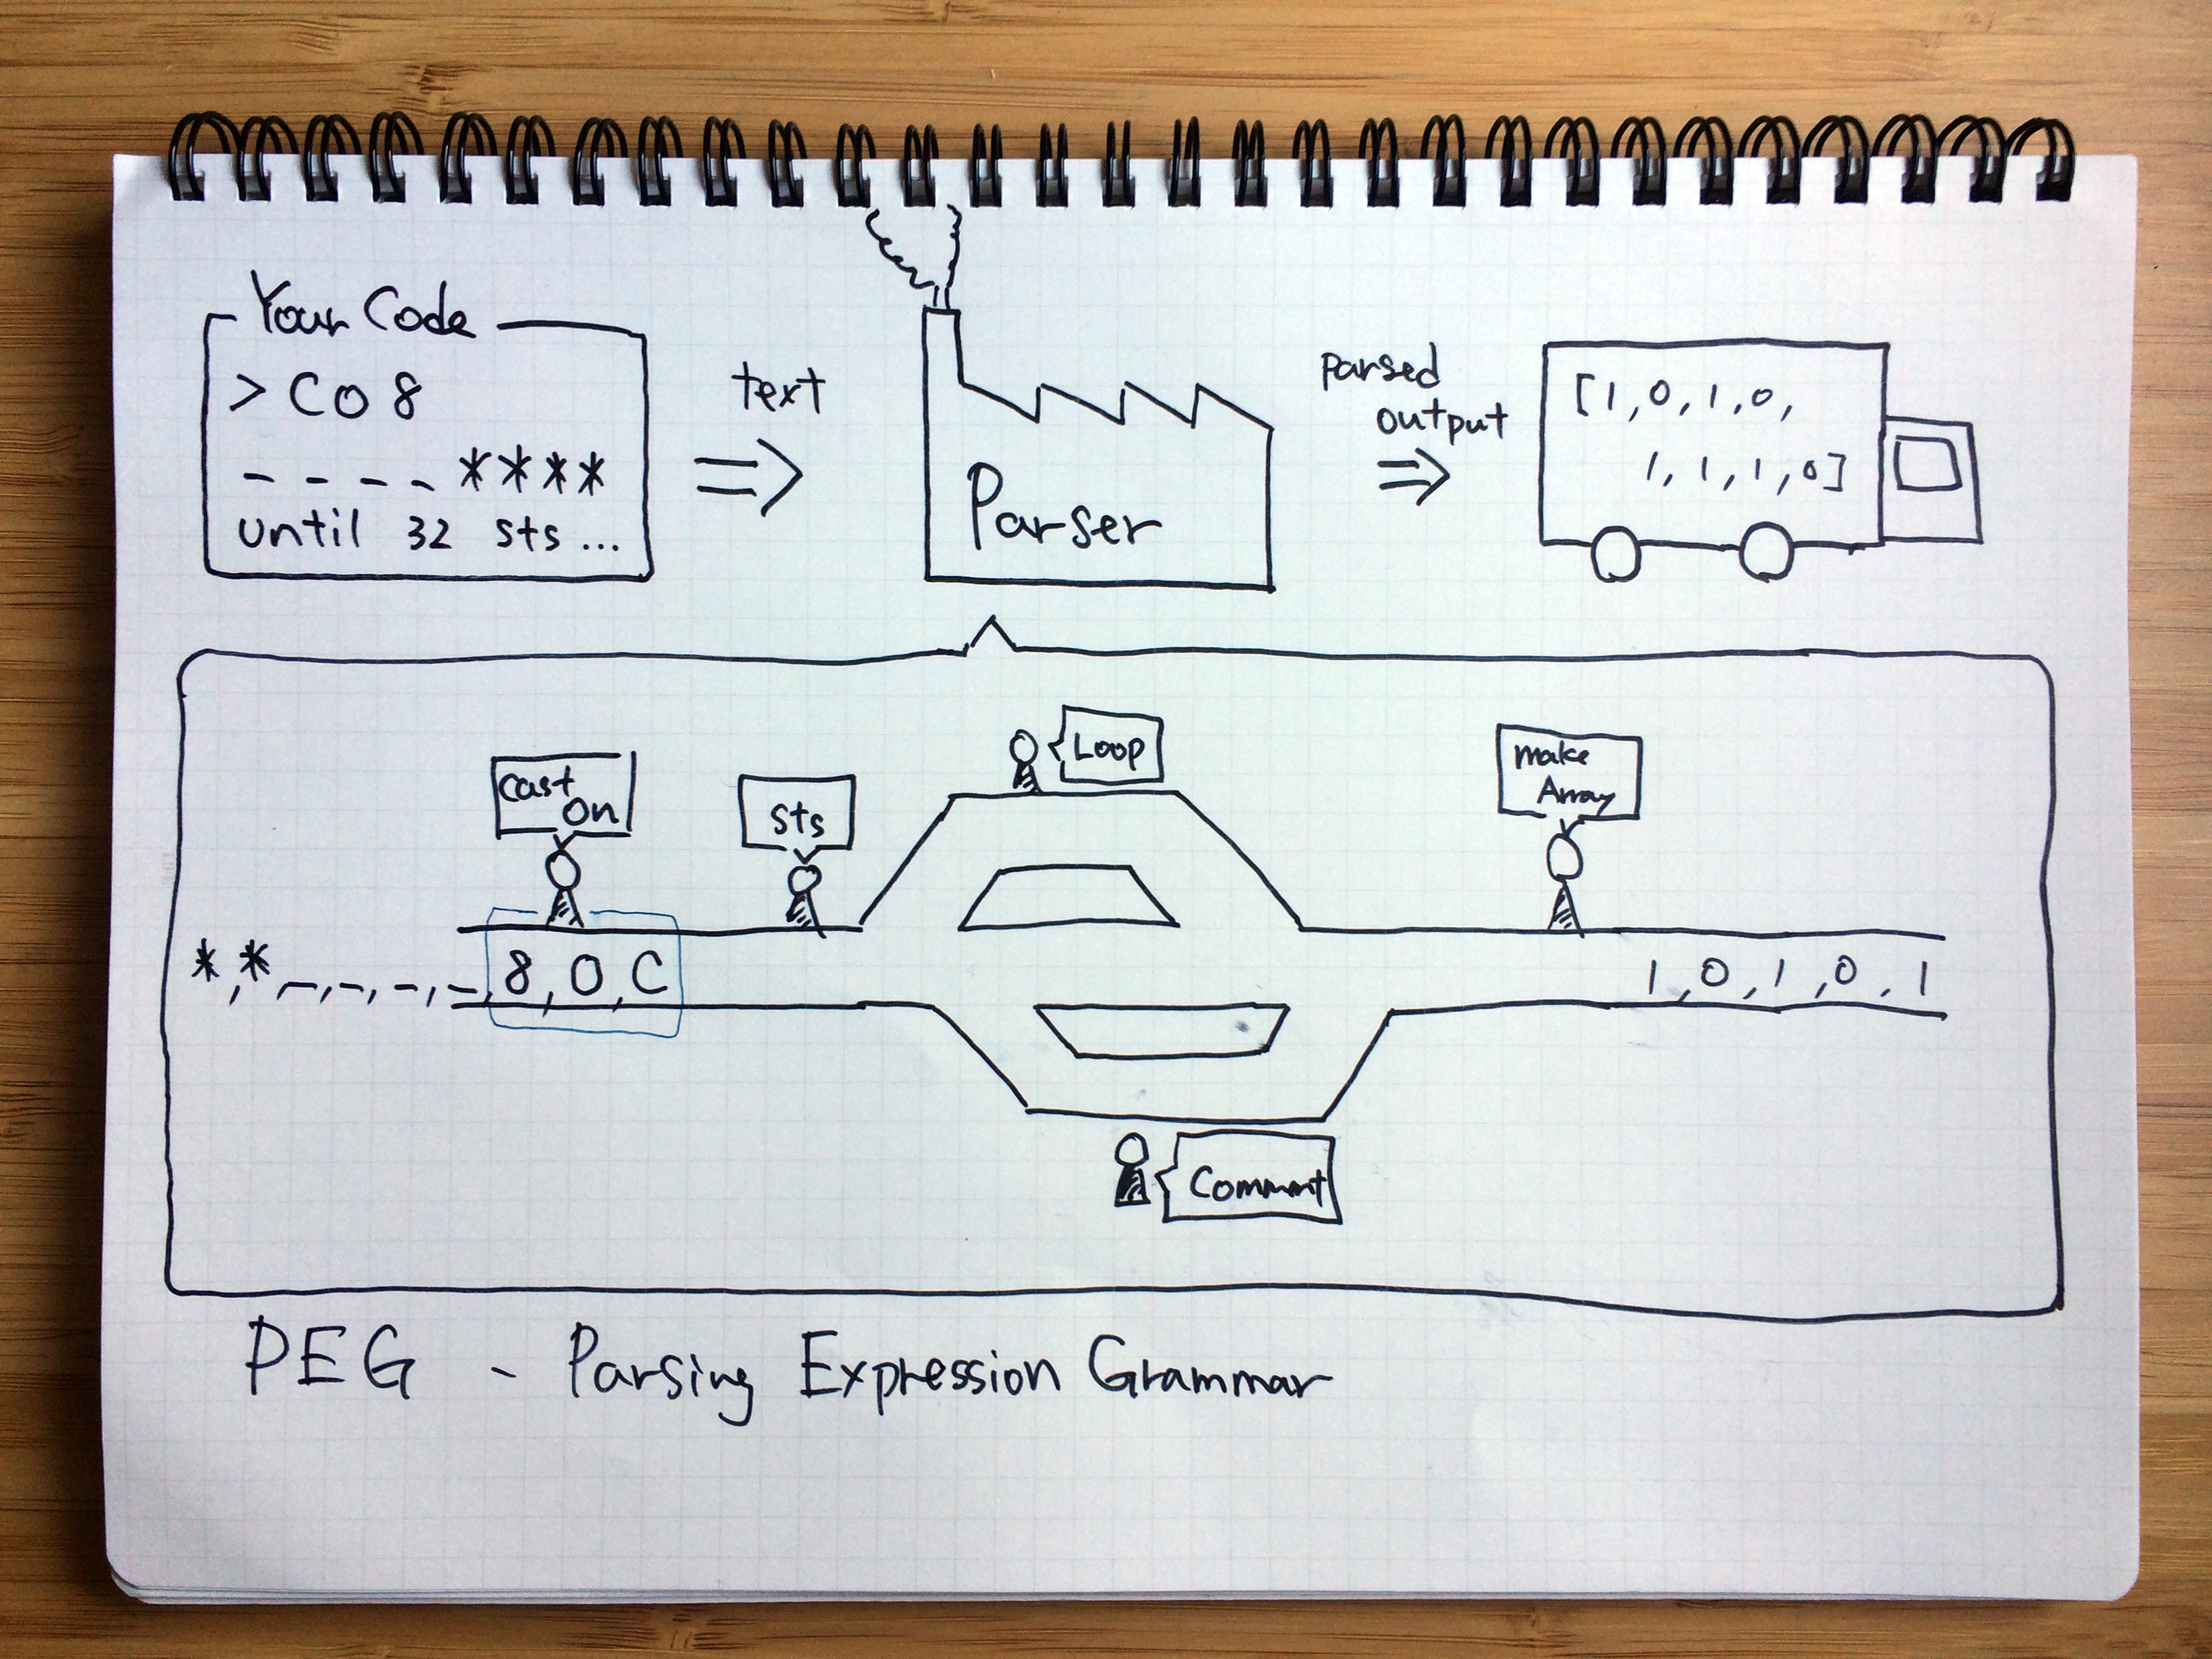 Your Code
> CO 8
_ _ _ _ * * * *
until 32 sts ...
text
Parser
Parsed
output
[1, 0, 1, 0,
1, 1, 1, 0]
Cast
On
sts
Loop
make
Array
*, *, _, _, _, _, 8, O, C
1, 0, 1, 0, 1
Comment
PEG - Parsing Expression Grammar